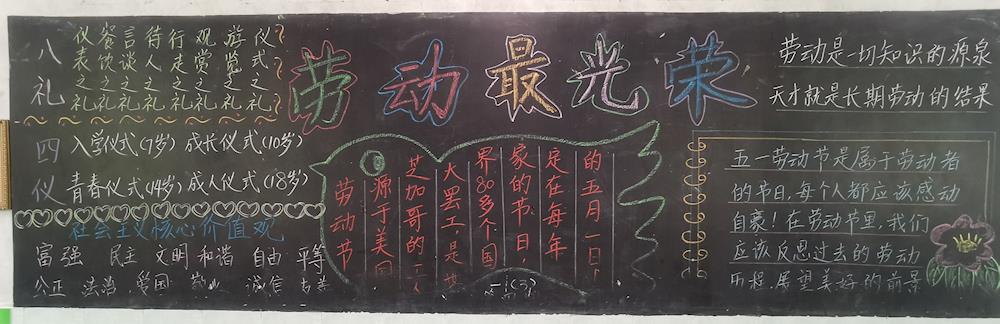 八礼
仪表之礼
餐饮之礼
言谈之礼
待人之礼
行走之礼
观赏之礼
游览之礼
仪式之礼
四仪
入学仪式(7岁) 成长仪式(10岁)
青春仪式(14岁) 成人仪式(18岁)
社会主义核心价值观
富强 民主 文明 和谐 自由 平等
公正 法治 爱国 诚信
劳动最光荣
劳动节
源于美国
芝加哥的
大罢工,是世
界80多个国
家的节日,
定在每年
的五月一日。
一(3)
劳动是一切知识的源泉
天才就是长期劳动的结果
五一劳动节是属于劳动者
的节日,每个人都应该感动
自豪!在劳动节里,我们
应该反思过去的劳动
历程,展望美好的前景